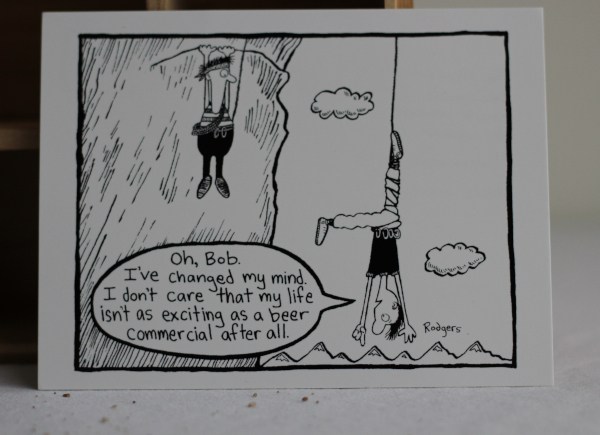 Oh, Bob.
I've changed my mind.
I don't care that my life
isn't as exciting as a beer
commercial after all.
Rodgers